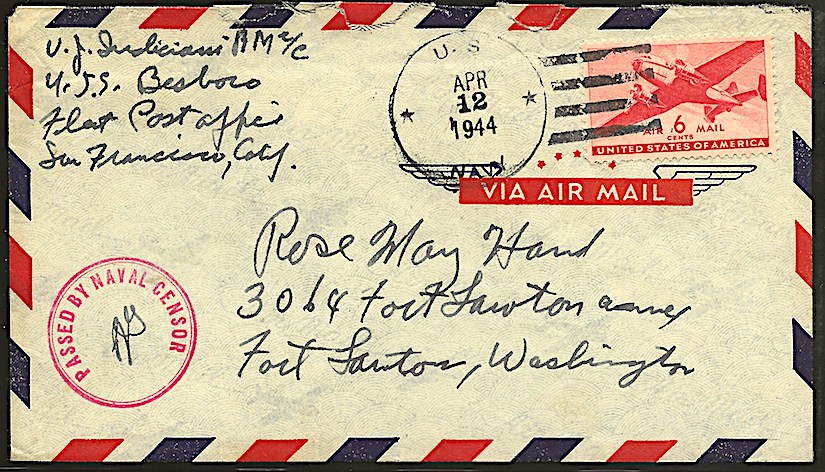 V. J. Indiciani BM 2/C
U.S.S. Besboro
Fleet Post office
San Francisco, Calif.
U. S.
APR
12
1944
NAVY
AIR 6 MAIL
CENTS
UNITED STATES OF AMERICA
VIA AIR MAIL
Rose May Hand
3064 Fort Lawton annex
Fort Lawton, Washington
PASSED BY NAVAL CENSOR